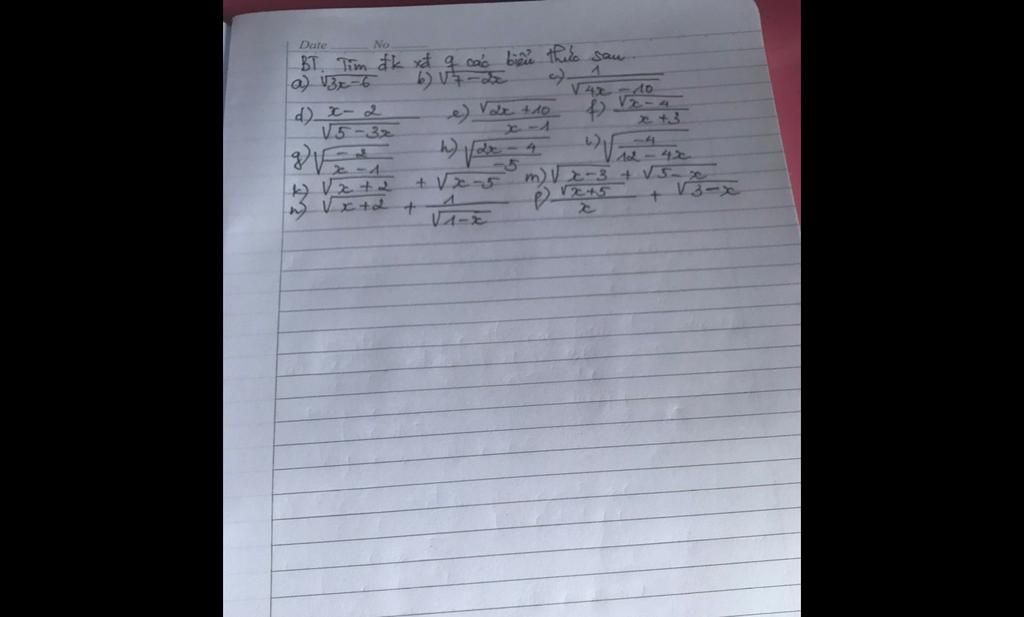 Date No
BT. Tìm đk xđ q các biểu thức sau.
a) √3x-6 b) √7-2x c) 1/√4x-10
d) x-2/√5-3x e) √2x+10/x-1 f) √x-4/x+3
g) √-2/x-1 h) √2x-4/-5 i) √-4/12-4x
k) √x+2 + √x-5 m) √x-3 + √5-x
n) √x+2 + 1/√1-x p) √x+5/x + √3-x